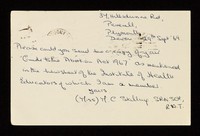 Peverell,
Plymouth,
Devon 29th Sept '69
Please could you send me a copy of your
Guide to the Abortion Act 1967 as mentioned
in the newsheet of the Institute of Health
Educators of which I am a member
yours
(Mrs) M C SRN. SCM.